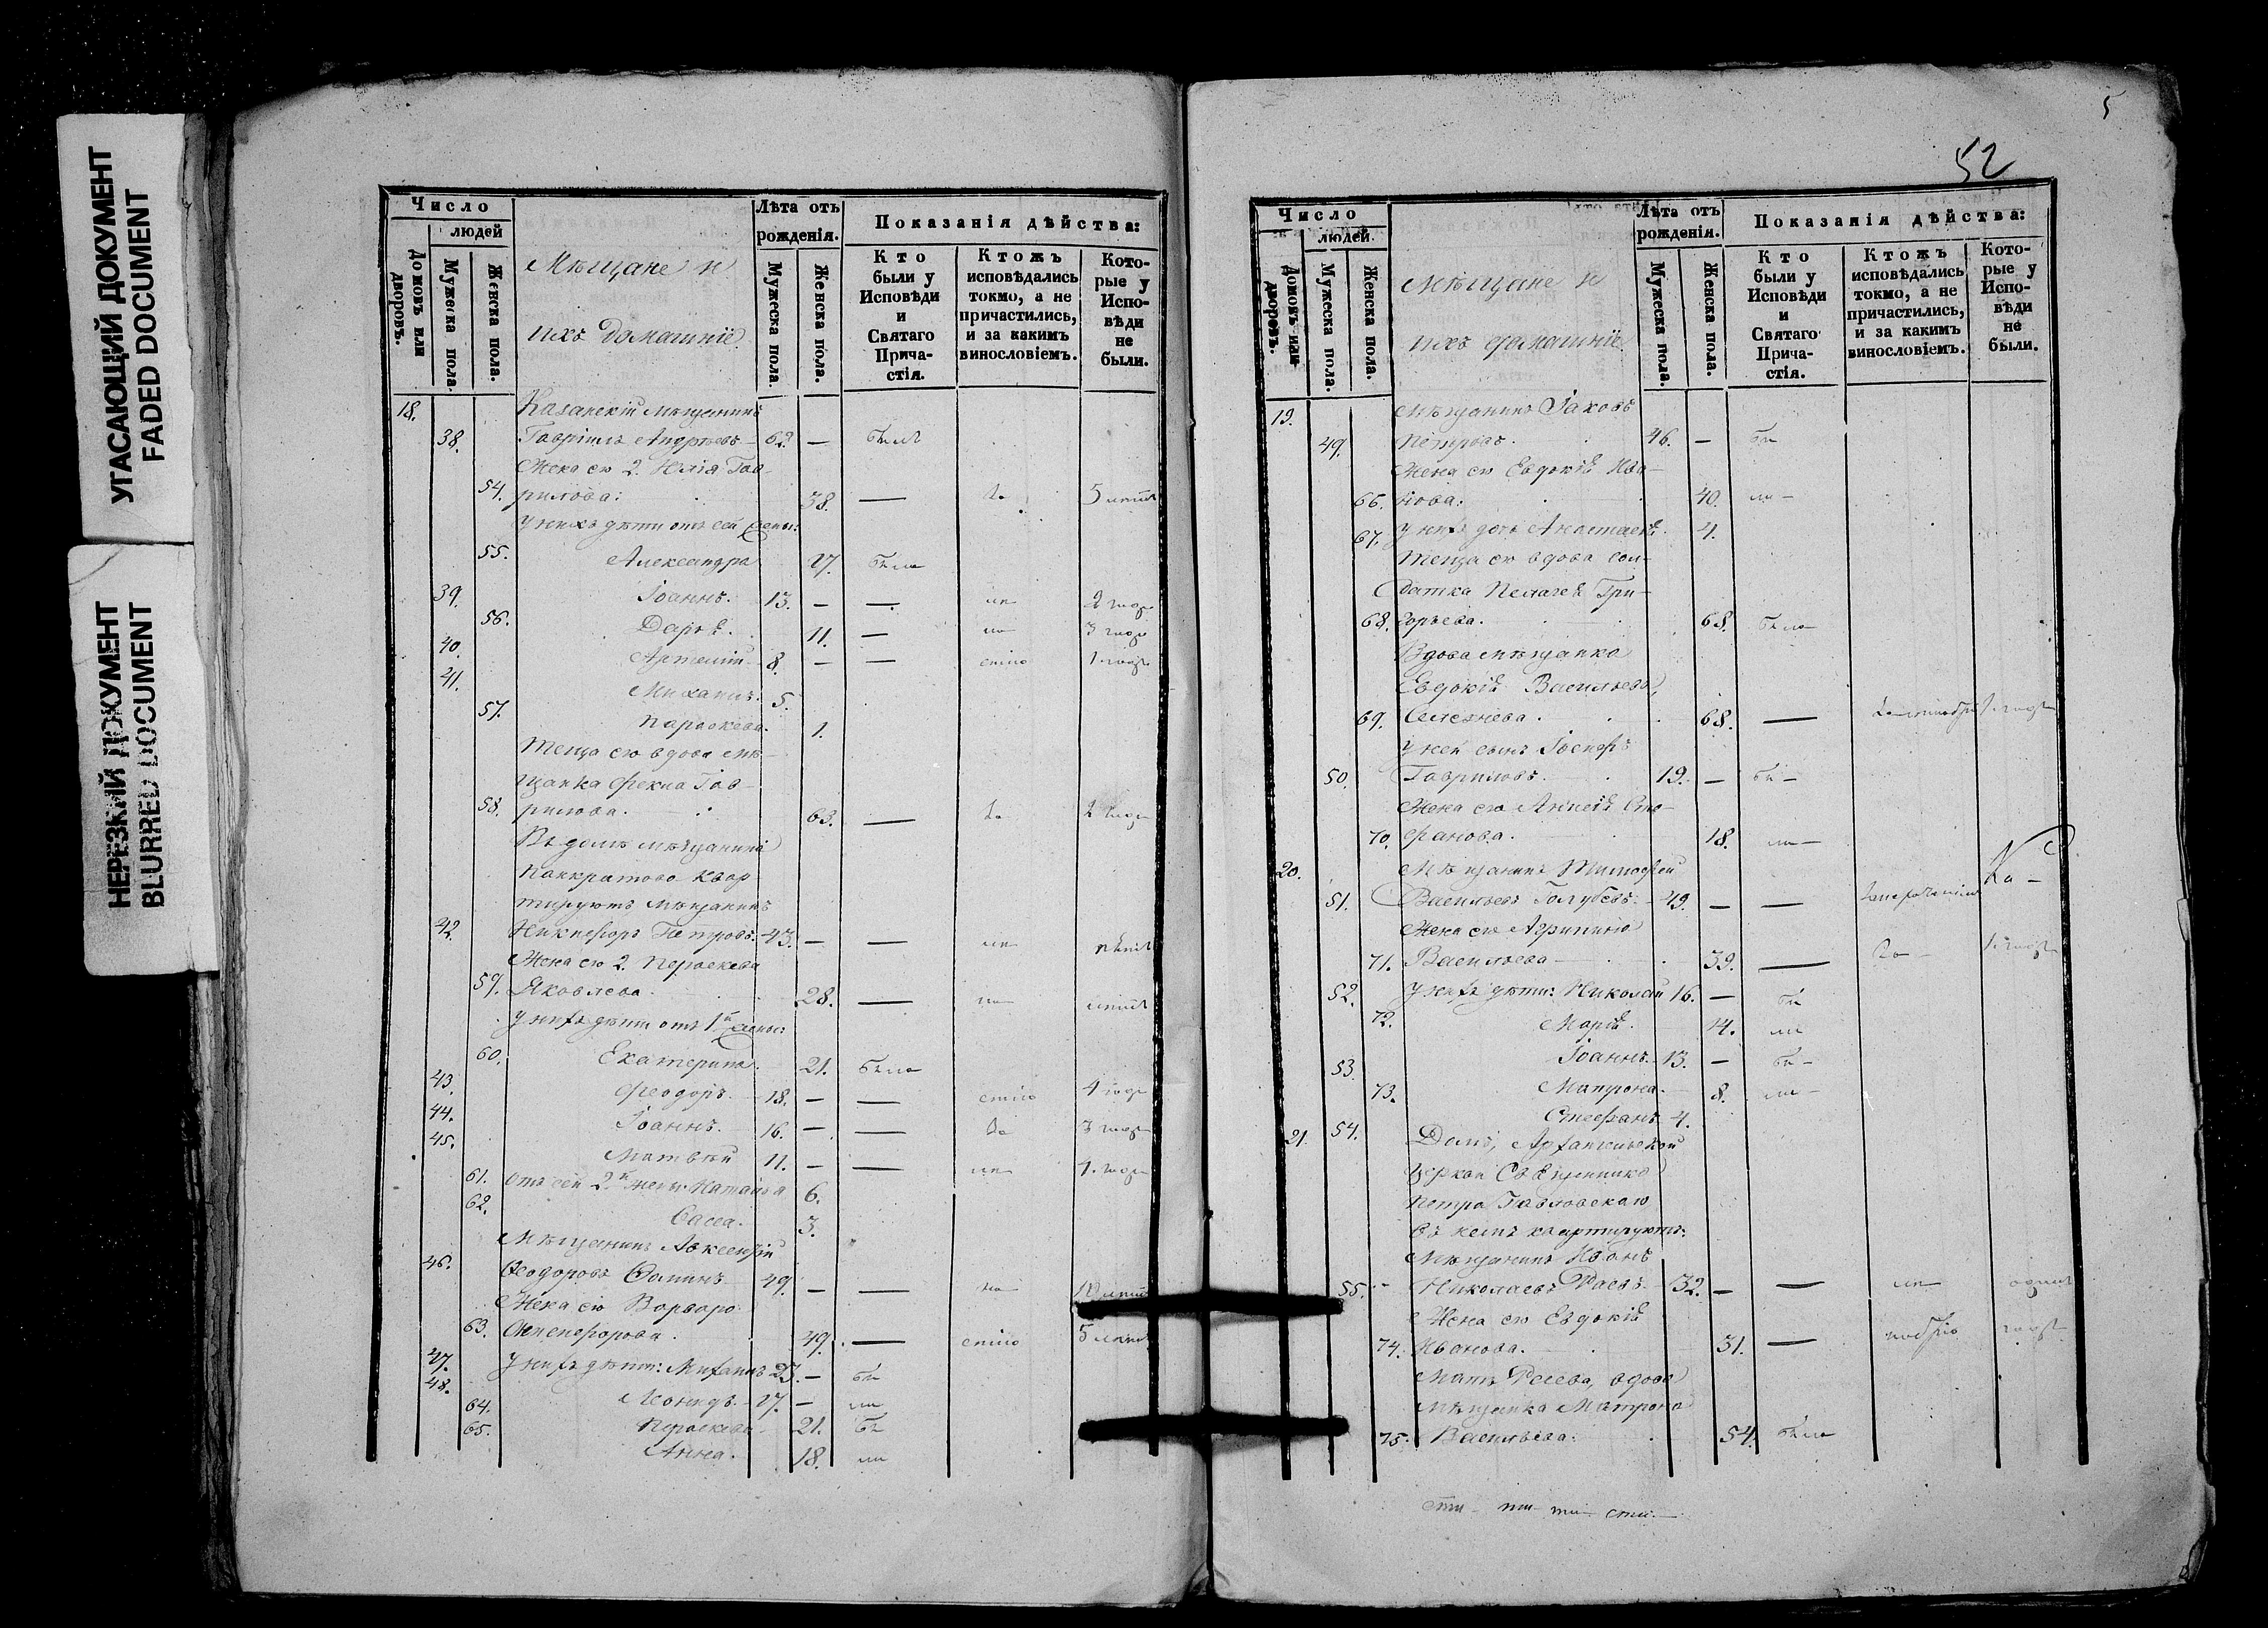 УГАСАЮЩИЙ ДОКУМЕНТ
FADED DOCUMENT
НЕРЕЗКИЙ ДОКУМЕНТ
BLURRED DOCUMENT
Число
людей
Домовъ или дворовъ.
Мужеска пола.
Женска пола.
Мѣщане и
ихъ домашніе.
Лѣта отъ рожденія.
Мужеска пола.
Женска пола.
Показанія дѣйства:
Кто были у Исповѣди и Святаго Причастія.
Ктожъ исповѣдались токмо, а не причастились, и за какимъ винословіемъ.
Которые у Исповѣди не были.
18. Казанскій мѣщанинъ
38. Гавріилъ Андреевъ 62. — былъ
Жена его 2. Юлія Гав-
54. рилова: 38. — 5 лѣтъ
У нихъ дѣти отъ сей жены:
55. Александра 17. была
39. Іоаннъ. 13. — — 2 года
56. Дарья. 11. — 3 года
40. Артемій 8. — — 1 годъ
41. Михаилъ. 5.
57. Параскева. 1.
Теща его вдова мѣ-
щанка Фекла Гав-
58. рилова. 63. — 2 года
Въ домѣ мѣщанина
Панкратова квар-
тируютъ мѣщанинъ
42. Никифоръ Петровъ. 43. — —
Жена его 2. Параскева
59. Яковлева. 28. —
У нихъ дѣти отъ 1й жены:
60. Екатерина. 21. была
43. Феодоръ. 18. — — 4 года
44. Іоаннъ. 16. — — 3 года
45. Матвѣй 11. — — 4 года
61. Отъ сей 2й жены Наталья 6.
62. Васса. 3.
Мѣщанинъ Авксентій
46. Феодоровъ Фоминъ 49. — —
Жена его Варвара
63. Никифорова. 49. — 5 лѣтъ
47. У нихъ дѣти: Михаилъ 23. —
48. Леонидъ. 17. —
64. Параскева. 21.
65. Анна. 18.
5
52
Число
людей
Домовъ или дворовъ.
Мужеска пола.
Женска пола.
Мѣщане и
ихъ домашніе.
Лѣта отъ рожденія.
Мужеска пола.
Женска пола.
Показанія дѣйства:
Кто были у Исповѣди и Святаго Причастія.
Ктожъ исповѣдались токмо, а не причастились, и за какимъ винословіемъ.
Которые у Исповѣди не были.
19. Мѣщанинъ Іаковъ
49. Петровъ. 46. —
Жена его Евдокія Ива-
66. нова. 40.
67. У нихъ дочь Анастасія. 4.
Теща его вдова сол-
датка Пелагея Гри-
68. горьева. 68. была
Вдова мѣщанка
Евдокія Васильева
69. Селезнева. 68. —
У ней сынъ Іосифъ
50. Гавриловъ. 19. —
Жена его Анисія Сте-
70. фанова. 18.
20. Мѣщанинъ Тимофей
51. Васильевъ Голубевъ. 49. — —
Жена его Агрипина
71. Васильева 39. — 1 годъ
52. У нихъ дѣти: Николай 16. —
72. Марія. 14.
53. Іоаннъ. 13. —
73. Матрона. 8.
54. Стефанъ 4.
21. Домъ, Архангельской
церкви Священника
Петра Павловскаго
въ немъ квартируютъ:
Мѣщанинъ Иванъ
55. Николаевъ 32. — —
Жена его Евдокія
74. Иванова. 31. —
Мать вдова
мѣщанка Матрона
75. Васильева. 54. была